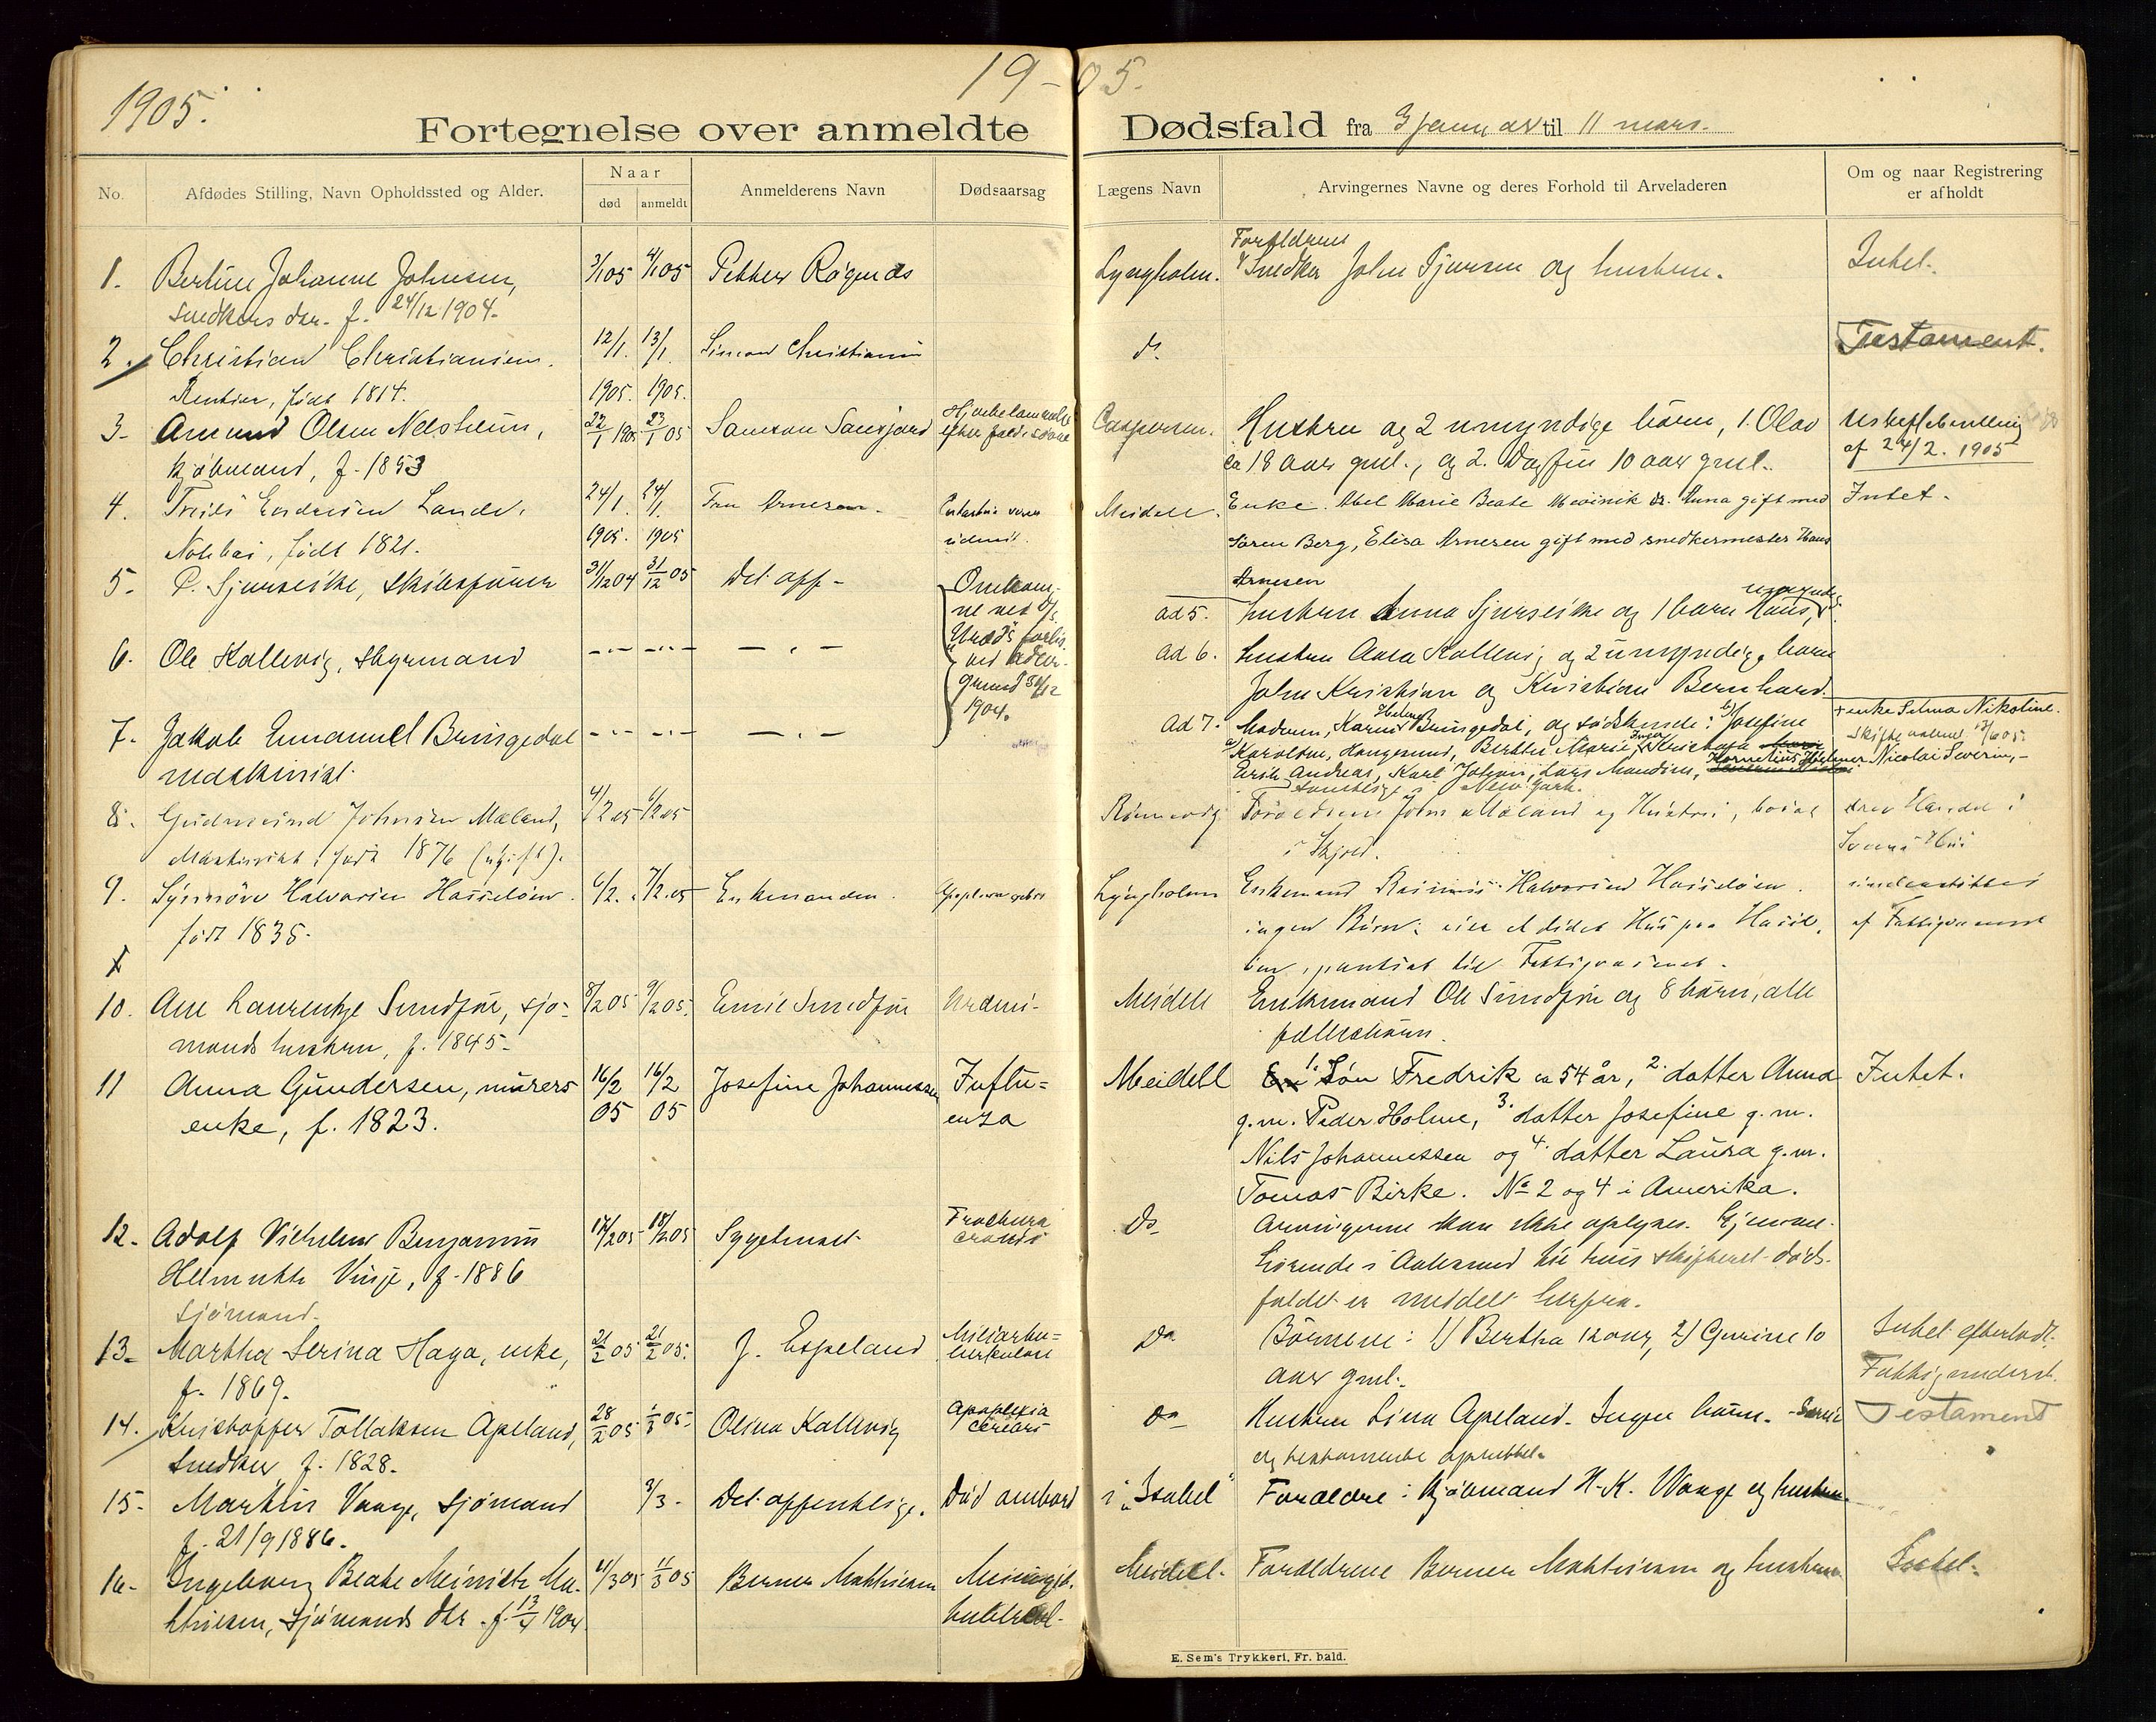 1905.
19-05.
Fortegnelse over anmeldte Dødsfald fra 3 januar til 11 mars.
No. Afdødes Stilling, Navn Opholdssted og Alder. Naar død anmeldt Anmelderens Navn Dødsaarsag Lægens Navn Arvingernes Navne og deres Forhold til Arveladeren Om og naar Registrering er afholdt
1. Bertine Johanne Johnsen, 3/1 05 4/1 05 Petter Røgenæs Lyngholm. Forældrene Snedker John Sjursen og hustru. Intet.
Snedkers dtr. f. 24/12 1904.
2. Christian Christiansen. 12/1. 13/1. Simon Christiansen do. Testament.
Rentier, født 1814. 1905. 1905.
3. Amund Olsen Nelsheim, 22/1 1905 23/1 05 Samson Sausjord Hjertelammelse efter fald i søen Caspersen. Hustru og 2 umyndige børn, 1. Olav Uskiftebevilling
kjøbmand, f. 1853 ca 18 aar gml., og 2. Dagfin 10 aar gml. af 24/2. 1905
4. Endresen Lande, 24/1. 24/1. Fru Arnesen. Meidell. Enke. Abel Marie Beate dr. Anna gift med Intet.
født 1821. 1905. 1905 Søren Berg, Elisa Arnesen gift med snedkermester Hans
Arnesen
5. P. Sjurseike, Skibsfører 31/12 04 31/12 05 Det off- Omkomne ved D/S "Uræd"s forlis ved grund 31/12 1904. ad 5. hustru Anna Sjurseike og 1 barn Hans, umyndig.
6. Ole Kallevig, Styrmand -"- -"- -"- ad 6. hustru Anna Kallevig og 2 umyndige børn
John Kristian og Kristian Bernhard.
7. Jakob Emanuel Bringedal -"- -"- -"- ad 7. Moderen, Karen Helene Bringedal, og sødskende: b) Josefine + enke Selma Nikoline.
maskinist. a) Karolsen, Haugesund, Berthe Marie, Inga Kristofa
Erik Andreas, Karl Johan, Lars Mandius, Kornelius Nicolai Severin,
samtlige i New York.
8. Gudmund Johnsen Mæland, 4/2 05 6/2 05 Rønnevig Forældrene John Mæland og Hustru, boende drev Handel i
Maskinist, født 1876 (ugift). i Skjold.
9. Synnøve Halvorsen Hasseløen. 6/2. 7/2.05 Enkemanden. Lyngholm Enkemand Rasmus Halvorsen Hasseløen. understøttes
født 1835. ingen Børn; eier et lidet Hus paa Hassel- af Fattigvæsenet
øen, pantsat til Fattigvæsenet.
10. Ane Laurentze Sundfør, sjø- 8/2 05 9/2 05. Emil Sundfør Uræmi- Meidell Enkemand Ole Sundfør og 8 børn, alle
mands hustru, f. 1845. fællesbørn.
11 Anna Gundersen, murers 16/2 16/2 Josefine Johannessen Influ= Meidell 1. Søn Fredrik ca 54 år, 2. datter Anna Intet.
enke, f. 1823. 05 05 enza g.m. Peder Holme, 3. datter Josefine g.m.
Nils Johannessen og 4. datter Laura g.m.
Tomas Birke. No 2 og 4 i Amerika.
12. Adolf Vilhelm Benjamin 17/2 05 18/2 05 Sygehuset Fractura cranii do- Arvingerne kan ikke oplyses. Hjemme-
Helmutte Vinje, f. 1886 hørende i Aalesund til hvis skifteret døds-
sjømand. faldet er meddelt herfra.
13. Martha Serina Haga, enke, 21/2 05 21/2 05. J. Espeland Miliærtu= berkulose do Børnene: 1) Bertha 12 aar, 2) Gurine 10 Intet efterladt.
f. 1869. aar gml. Fattigunderst.
14. Kristoffer Tollaksen Apeland, 28/2 05 1/3 05. Olena Kallevig Apoplexia cerebri do Hustru Lina Apeland. Ingen børn. Testament
Snedker, f. 1828. og testamente oprettet.
15. Martin Vaage, sjømand 2/3- Det offentlige. Død ombord i "Isabel" Forældre: kjøbmand H. K. Waage og hustru.
f. 21/9 1886.
16. Ingeborg Beate Ma- 11/3 05 11/3 05 Berner Mathiesen Meningit. tuberkul. Meidell. Forældrene Berner Mathiesen og hustru Intet.
thiesen, Sjømands dtr. f. 13/4 1904
E. Sem's Trykkeri, Fr. hald.